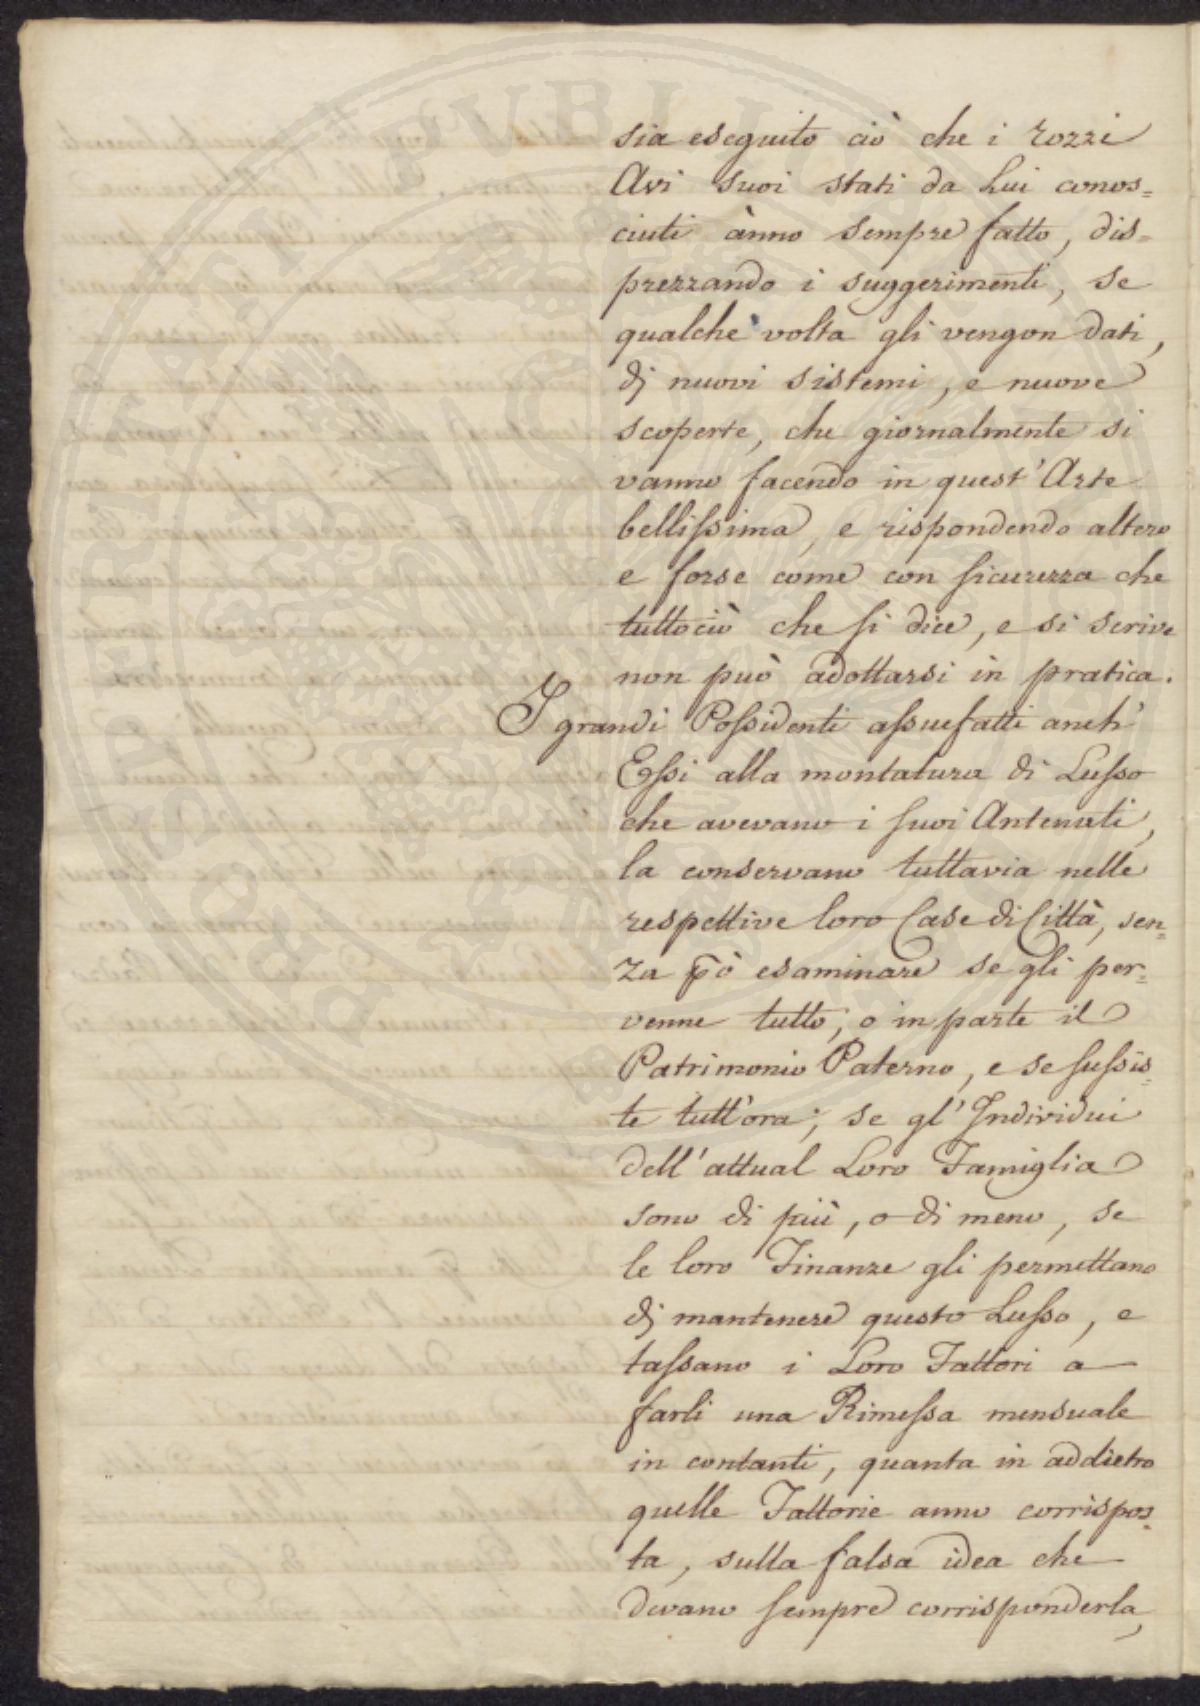 PROSPERITATI PUBLICAE
sia eseguito ciò che i rozzi
Avi suoi stati da Lui conos=
ciuti ànno sempre fatto, dis=
prezzando i suggerimenti, se
qualche volta gli vengon dati,
di nuovi sistemi, e nuove
scoperte, che giornalmente si
vanno facendo in quest' Arte
bellissima, e rispondendo altero
e forse come con sicurezza che
tuttociò che si dice, e si scrive
non può adottarsi in pratica.
I grandi Possidenti assuefatti anch'
Essi alla montatura di Lusso
che avevano i suoi Antenati,
la conservano tuttavia nelle
respettive loro Case di Città, sen=
za p̄ò esaminare se gli per=
venne tutto, o in parte il
Patrimonio Paterno, e se sussis=
te tutt'ora; se gl' Individui
dell' attual Loro Famiglia
sono di più, o di meno, se
le loro Finanze gli permettano
di mantenere questo Lusso, e
tassano i Loro Fattori a
farli una Rimessa mensuale
in contanti, quanta in addietro
quelle Fattorie anno corrispos=
ta, sulla falsa idea che
devano sempre corrisponderla,